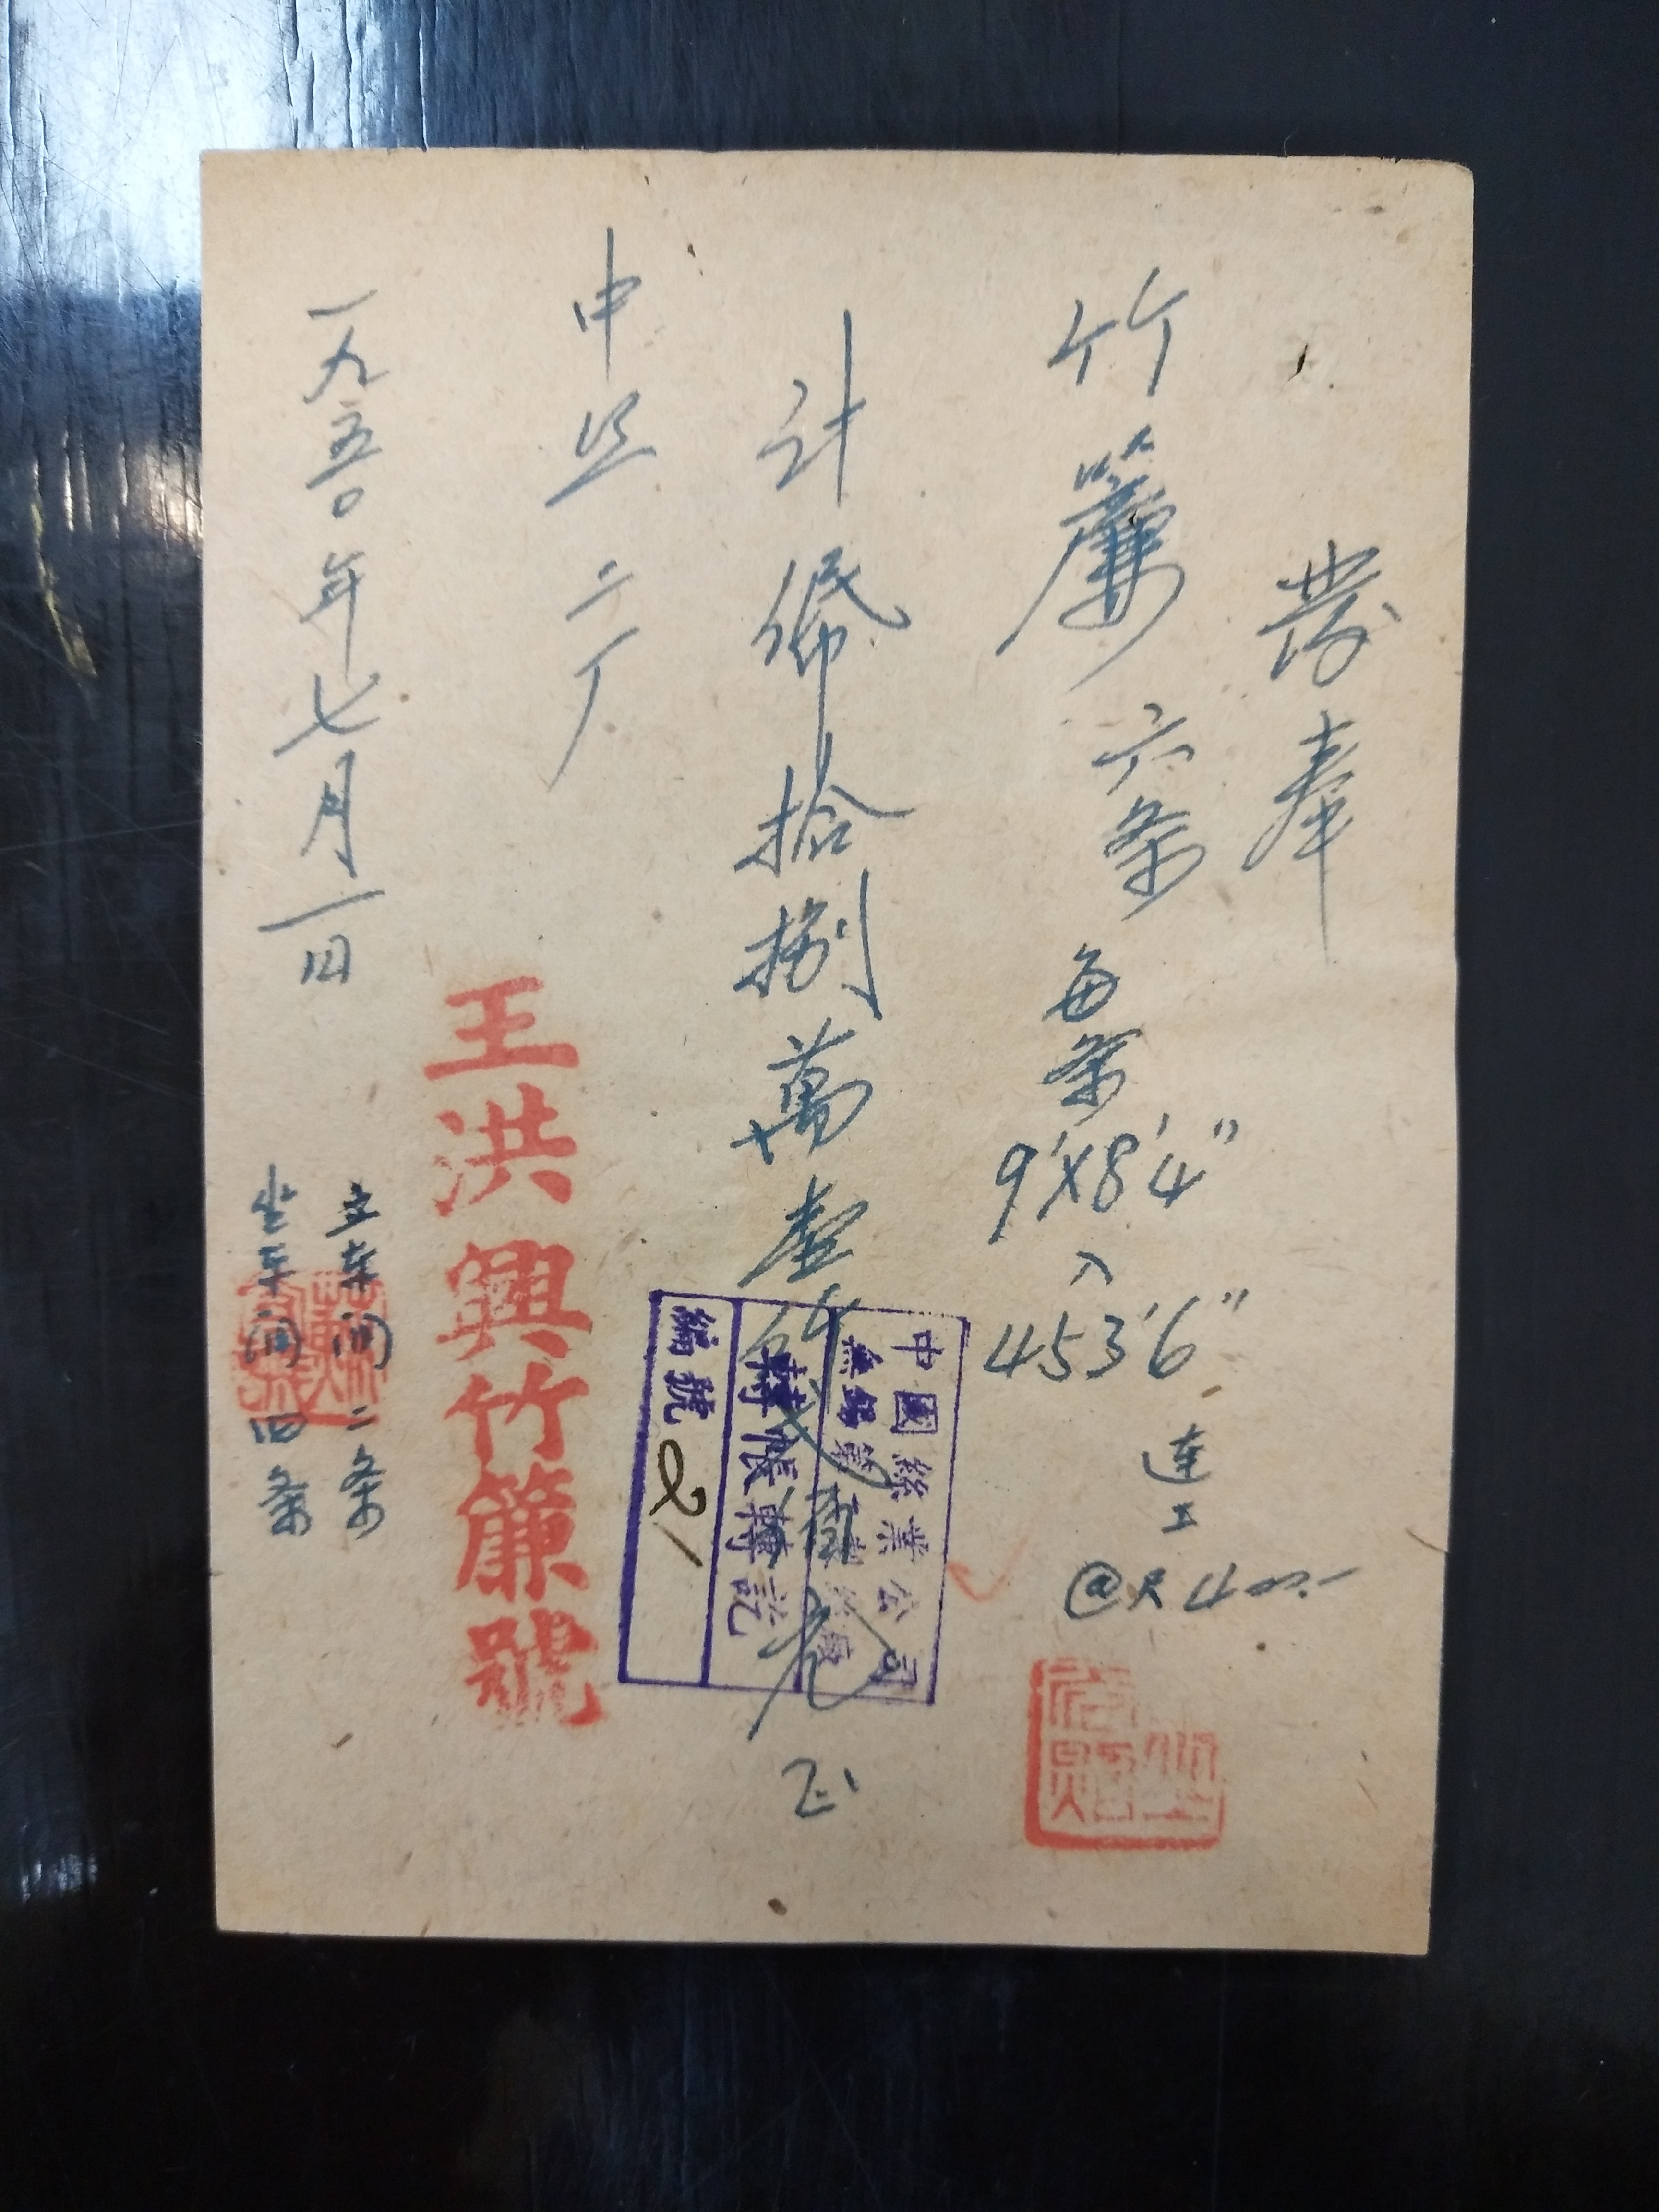 發奉
竹簾六条每条9'X8'4"入453'6"連工@尺400.-
計幣拾捌萬壹仟佰元正
中國絲業公司
無錫第製絲廠
轉帳轉訖
編號21
中丝二厂
王洪興竹簾號
一九五〇年七月一日
立车间二条
坐车间四条